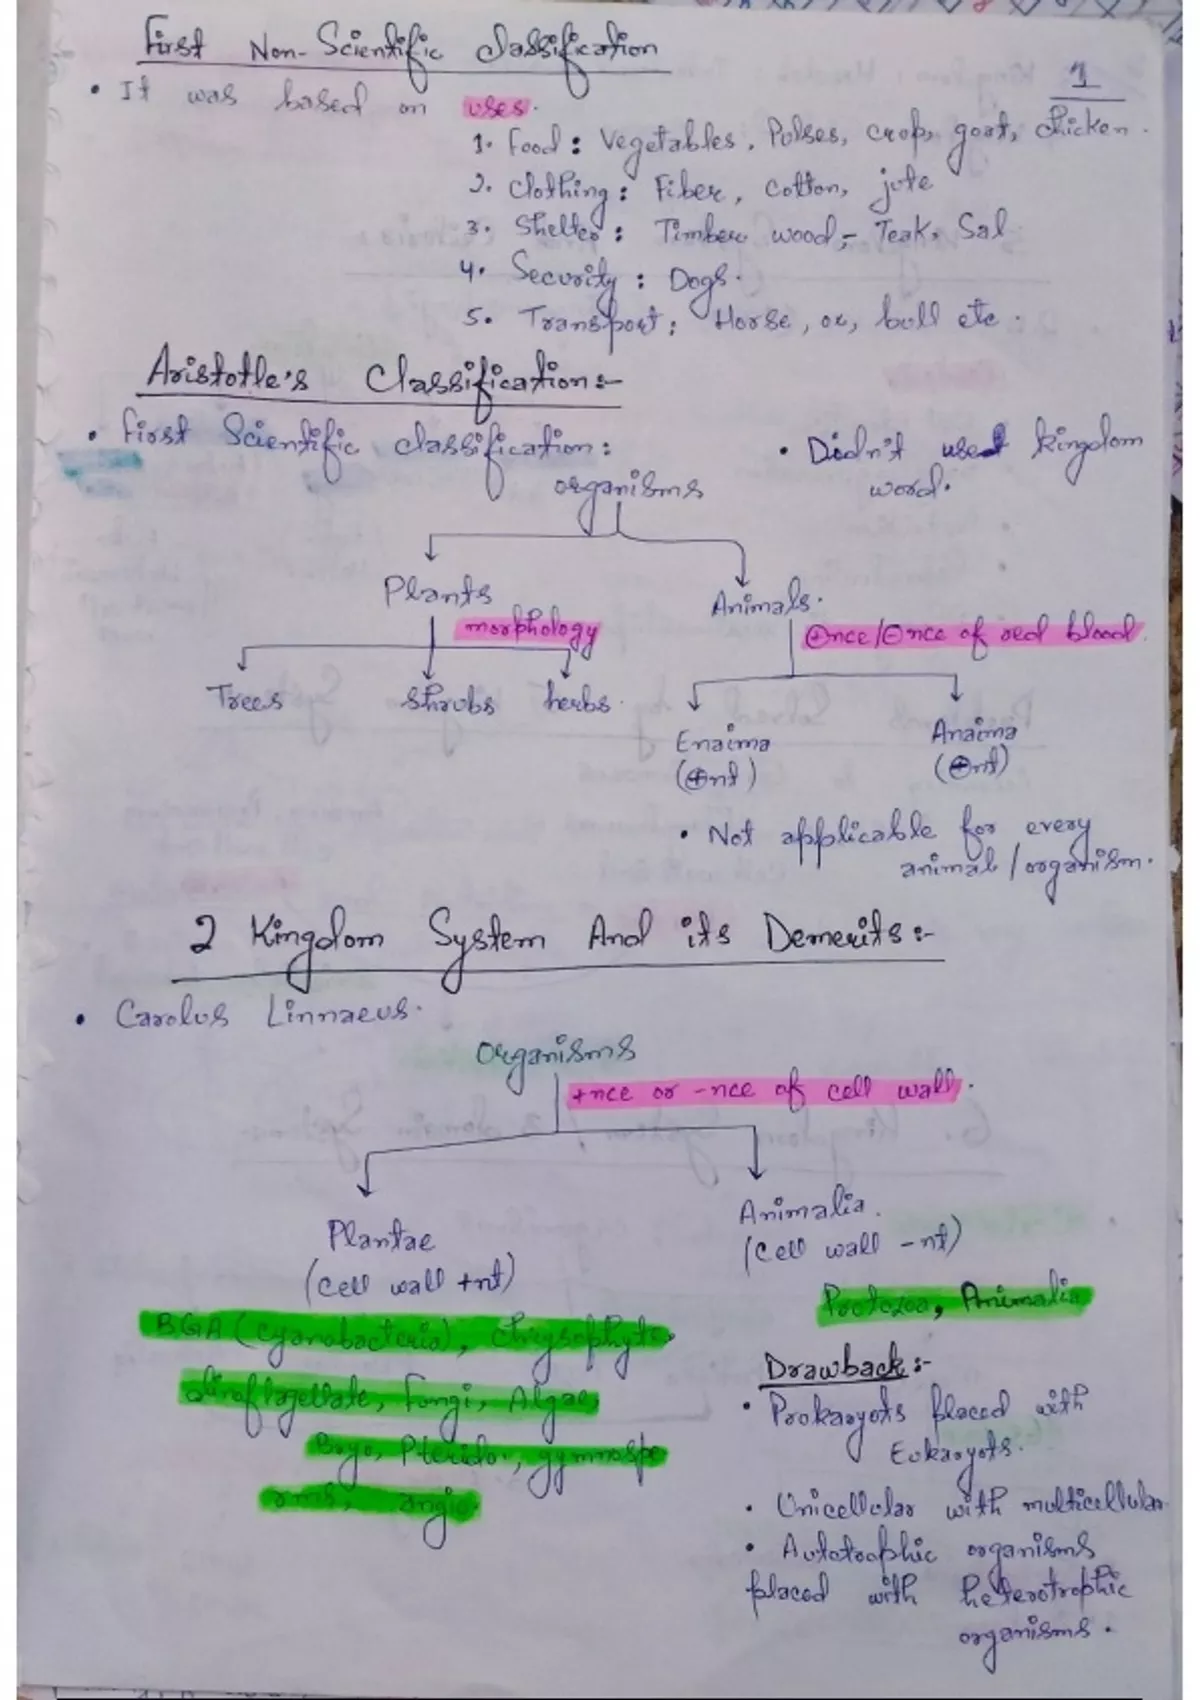 First Non-Scientific classification
1
• It was based on uses.
1. Food: Vegetables, Pulses, crop, goat, chicken.
2. Clothing: Fiber, cotton, jute
3. Shelter: Timber wood;- Teak, Sal
4. Security: Dogs.
5. Transport: Horse, ox, bull etc.
Aristotle's Classification:-
• First Scientific classification:
• Didn't used kingdom
word.
organisms
Plants
Animals.
morphology
⊕nce/⊖nce of red blood.
Trees shrubs herbs.
Enaima
(⊕nt)
Anaima
(⊖nt)
• Not applicable for every
animal/organism.
2 Kingdom System And its Demerits:-
• Carolus Linnaeus.
Organisms
+nce or -nce of cell wall.
Plantae
(cell wall +nt)
Animalia.
(cell wall -nt)
BGA (cyanobacteria), chrysophyte,
dinoflagellate, Fungi, Algae,
Bryo, Pterido., gymnospe
rms, angio.
Protozoa, Animalia
Drawback:-
• Prokaryots placed with
Eukaryots.
• Unicellular with multicellular
• Autotrophic organisms
placed with heterotrophic
organisms.